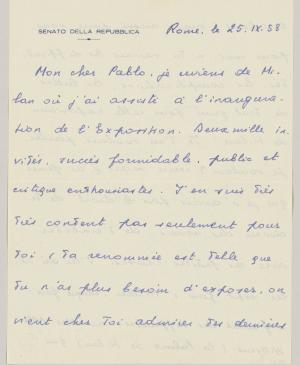 SENATO DELLA REPUBBLICA
Rome, le 25.IX.58
Mon cher Pablo, je reviens de Mi-
lan où j'ai assisté à l'inaugura-
tion de l'Exposition. Deux mille in-
vités, succès formidable, public et
critique enthousiastes. J'en suis très
très content pas seulement pour
toi, ta renommée est telle que
tu n'as plus besoin d'exposer, on
vient chez toi admirer tes dernières